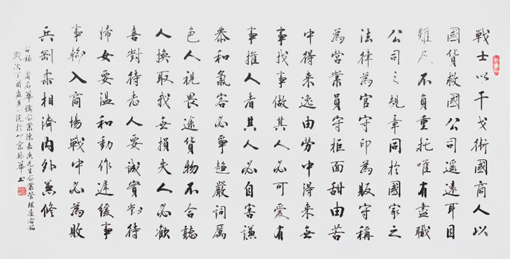 戰士以干戈衛國商人以
國貨救國公司遙遠耳目
難及不負重托唯有盡職
公司之規章同於國家之
法律為官守印為販守稱
為營業員守柜面甜由苦
中得來逸由勞中得來無
事找事做其人必可愛有
事推人者其人必自害謙
恭和氣客必爭趨嚴詞厲
色人視畏途貨物不合聽
人換取我無損失人必歡
喜對待老人要誠實對待
婦女要溫和動作遲緩事
事輸入商場戰中必為敗
兵剛柔相濟內外兼修
陳嘉庚先生
歲次丁酉孟夏